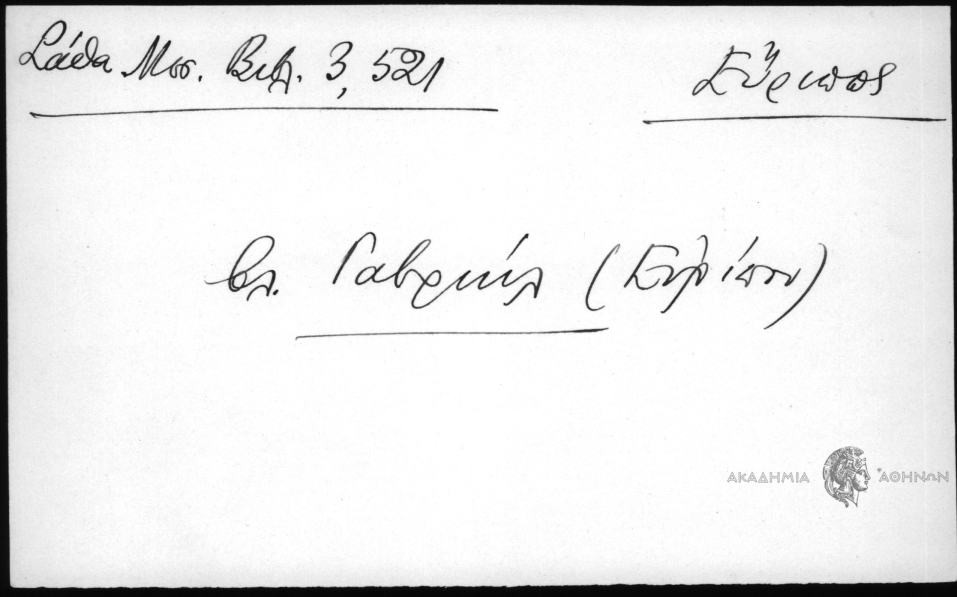 Σάθα Μεσ. Βιβλ. 3, 521
Εὔριπος
βλ. Γαβριήλ (Εὐρίπου)
ΑΚΑΔΗΜΙΑ ἈΘΗΝΩΝ